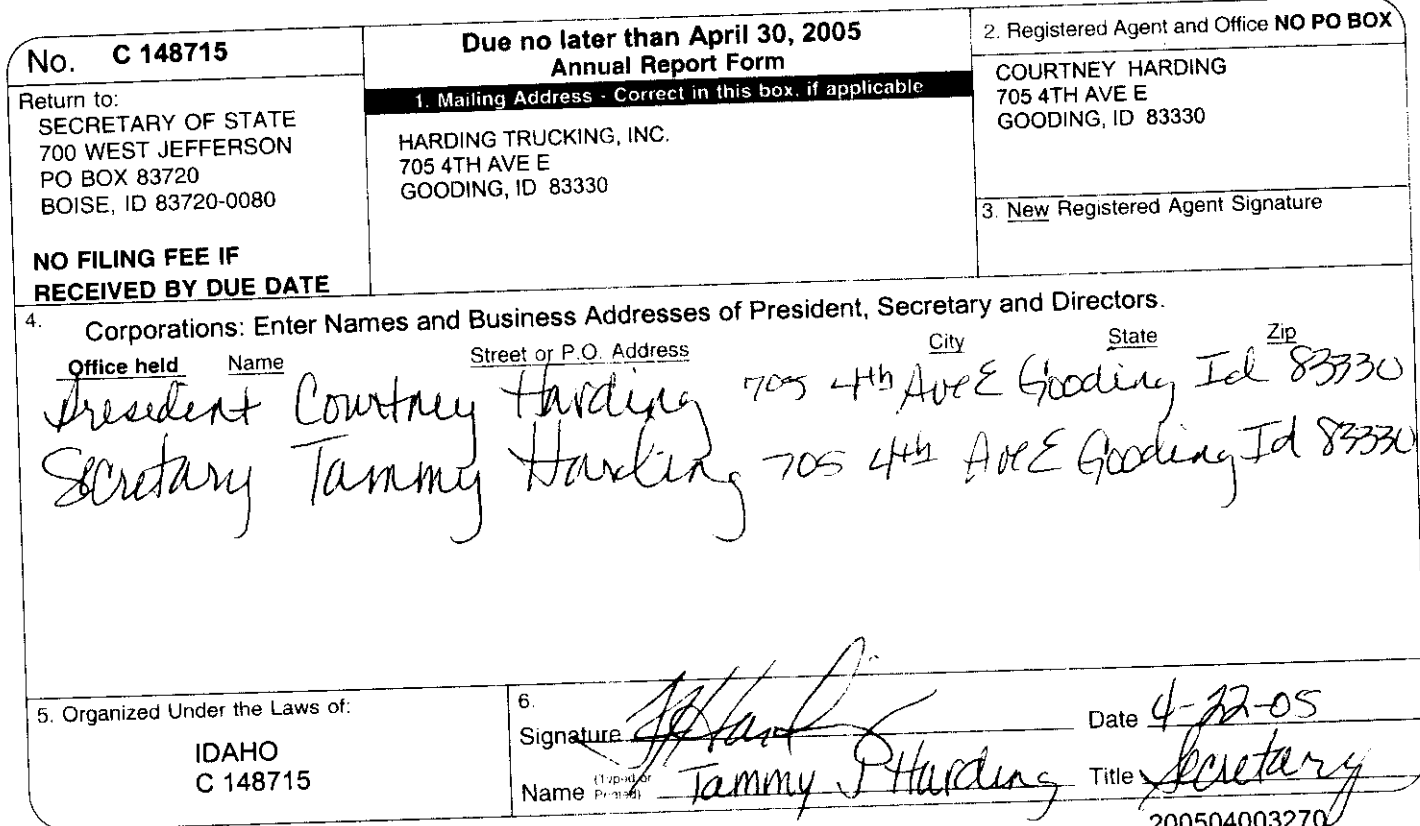 No. C 148715
Return to:
SECRETARY OF STATE
700 WEST JEFFERSON
PO BOX 83720
BOISE, ID 83720-0080
NO FILING FEE IF
RECEIVED BY DUE DATE
Due no later than April 30, 2005
Annual Report Form
1. Mailing Address - Correct in this box, if applicable
HARDING TRUCKING, INC.
705 4TH AVE E
GOODING, ID 83330
2. Registered Agent and Office NO PO BOX
COURTNEY HARDING
705 4TH AVE E
GOODING, ID 83330
3. New Registered Agent Signature
4. Corporations: Enter Names and Business Addresses of President, Secretary and Directors.
Office held Name Street or P.O. Address City State Zip
President Courtney Harding 705 4th Ave E Gooding Id 83330
Secretary Tammy Harding 705 4th Ave E Gooding Id 83330
5. Organized Under the Laws of:
IDAHO
C 148715
6.
Signature Date 4-22-05
Name (Typed or Printed) Tammy J Harding Title Secretary
200504003270